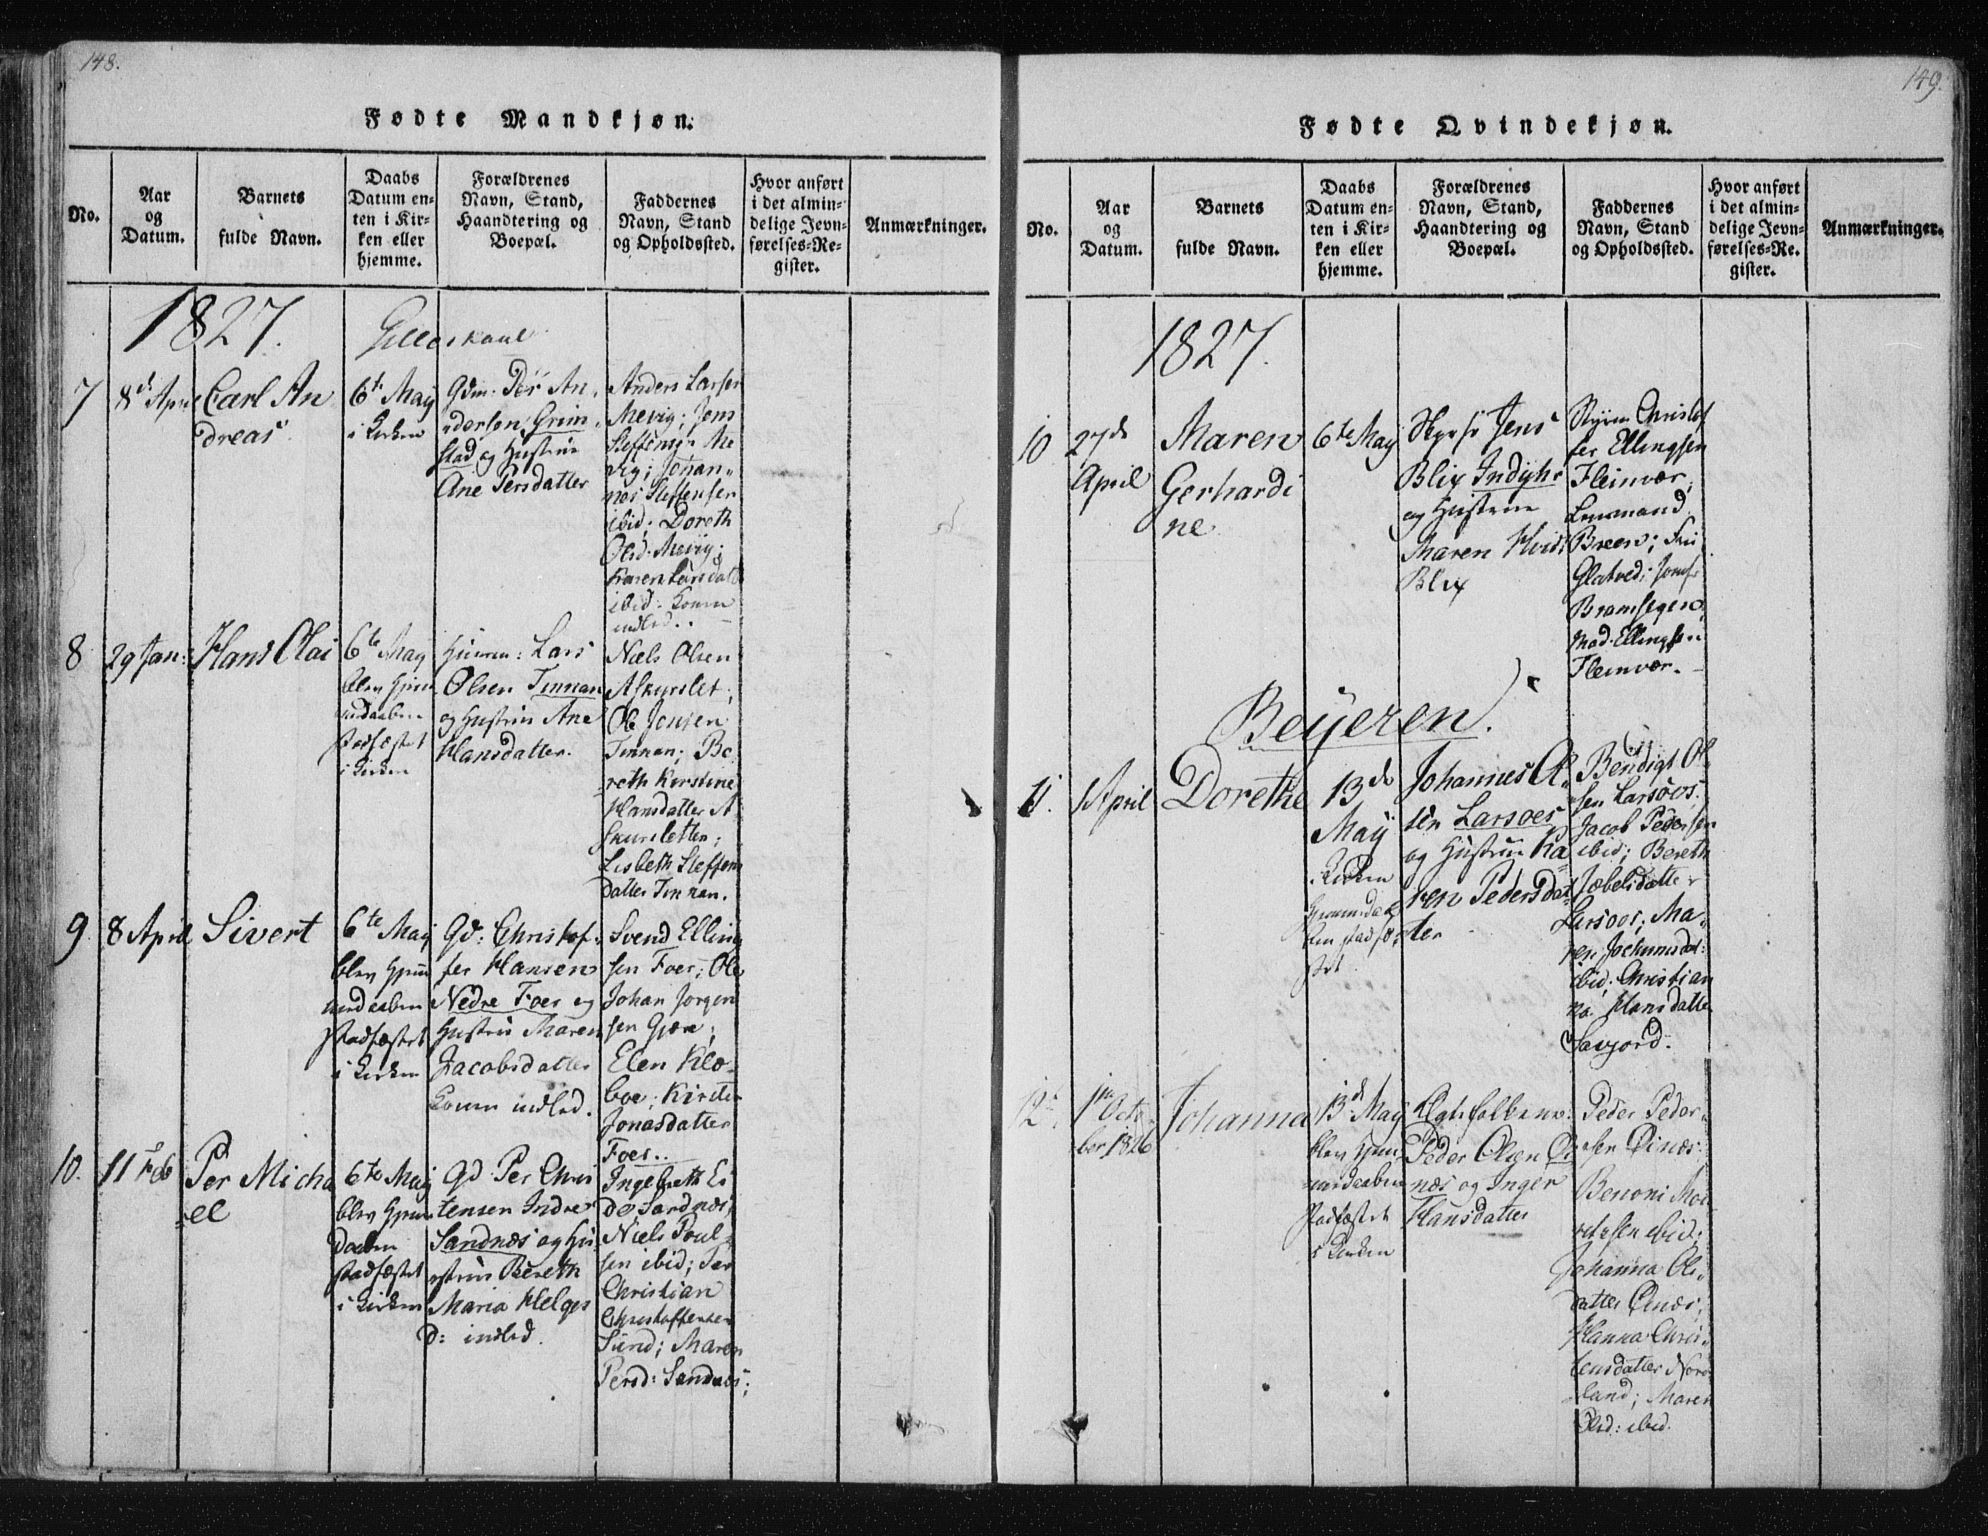 148.
Fødte Mandkjøn.
No.
Aar
og
Datum.
Barnets
fulde Navn.
Daabs
Datum en-
ten i Kir-
ken eller
hjemme.
Forældrenes
Navn, Stand,
Haandtering og
Boepæl.
Faddernes
Navn, Stand
og Opholdssted.
Hvor anført
i det almin-
delige Jevn-
førelses-Re-
gister.
Anmærkninger.
1827.
7
8d. Apr
Carl An
dreas
6te May
i Kirken
Gdm. Per An-
dersen Grim-
stad og Hustrue
Ane Persdatter
Anders Larsen
Mevig; Jens
Steffensen Me
vig; Johan-
nes Steffensen
ibid; Doreth
Olsd. Mevig;
Karen Larsdat
ibid. Konen
indled.
8
29 Jan:
Hans Olai
6te May
blev Hjem
medaaben
stadfæstet
i Kirken
Huusm: Lars
Olsen Tinnan
og Hustru Ane
Hansdatter.
Niels Olsen
Askyrslet;
Ole Jensen
Tinnan; Be
reth Kirstine
Hansdatter A
skursletten;
Lisbeth Steffens
datter Tinnan.
9.
8 April
Sivert
6te May
blev Hjem
medaaben
stadfæstet
i Kirken
Gd: Christof-
fer Hansen
Nedre Foer og
Hustru Maren
Jacobsdatter
Konen indled.
Svend Elling
sen Foer; Ole
Johan Jørgen
sen Gjære;
Elen Klo-
boe; Kirsten
Jonasdatter
Foer..
10.
11 Feb
Per Micha
el
6te May
blev Hjem
Daaben
stadfæstet
i Kirken
Gd. Per Chris
tensen Indre
Sandnæs og Hu
strue Bereth
Maria Helges
D: indled.
Ingebreth Ei
de Sandnæs;
Niels Poul-
sen ibid; Per
Christian
Christoffersen
Sund; Maren
Persd: Sandnæs;
149.
Fødte Qvindekjøn.
No.
Aar
og
Datum.
Barnets
fulde Navn.
Daabs
Datum en-
ten i Kir-
ken eller
hjemme.
Forældrenes
Navn, Stand,
Haandtering og
Boepæl.
Faddernes
Navn, Stand
og Opholdssted.
Hvor anført
i det almin-
delige Jevn-
førelses-Re-
gister.
Anmærkninger.
1827.
10
27de
April
Maren
Gerhardi
ne
6te May
Jens
Blix Indyhr
og Hustrue
Maren Hvid
Blix
Christof
fer Ellingsen
Fleinvær;
Lensmand
Breen;
Glatved; Jomfr
Mad. Ellingsen
Fleinvær.
Beyeren.
11.
1 April
Dorethe
13de
May
i Kirken
Hjemmedaa
ben stadfæ-
stet
Johannes Ol-
sen Larsoes
og Hustrue Ka
ren Pedersdat
ter
Bendigt Ol-
sen Larsoes.
Jacob Pedersen
ibid; Bereth
Larsoes; Ma-
ren Jochumsdat:
ibid. Christian
na Hansdatter
Savjord.
12.
1ste Octo
ber 1826
Johanna
13de May
blev Hjem
medaaben
stadfæstet
i Kirken
Ægtefolkene:
Peder Olsen Ei
næs og Inger
Hansdatter
Peder Peder-
sen Einæs:
Benoni Mor
tensen ibid:
Johanna Ols-
datter Einæs;
Hanna Chris-
tensdatter Nord
land; Maren
Olsd: ibid.